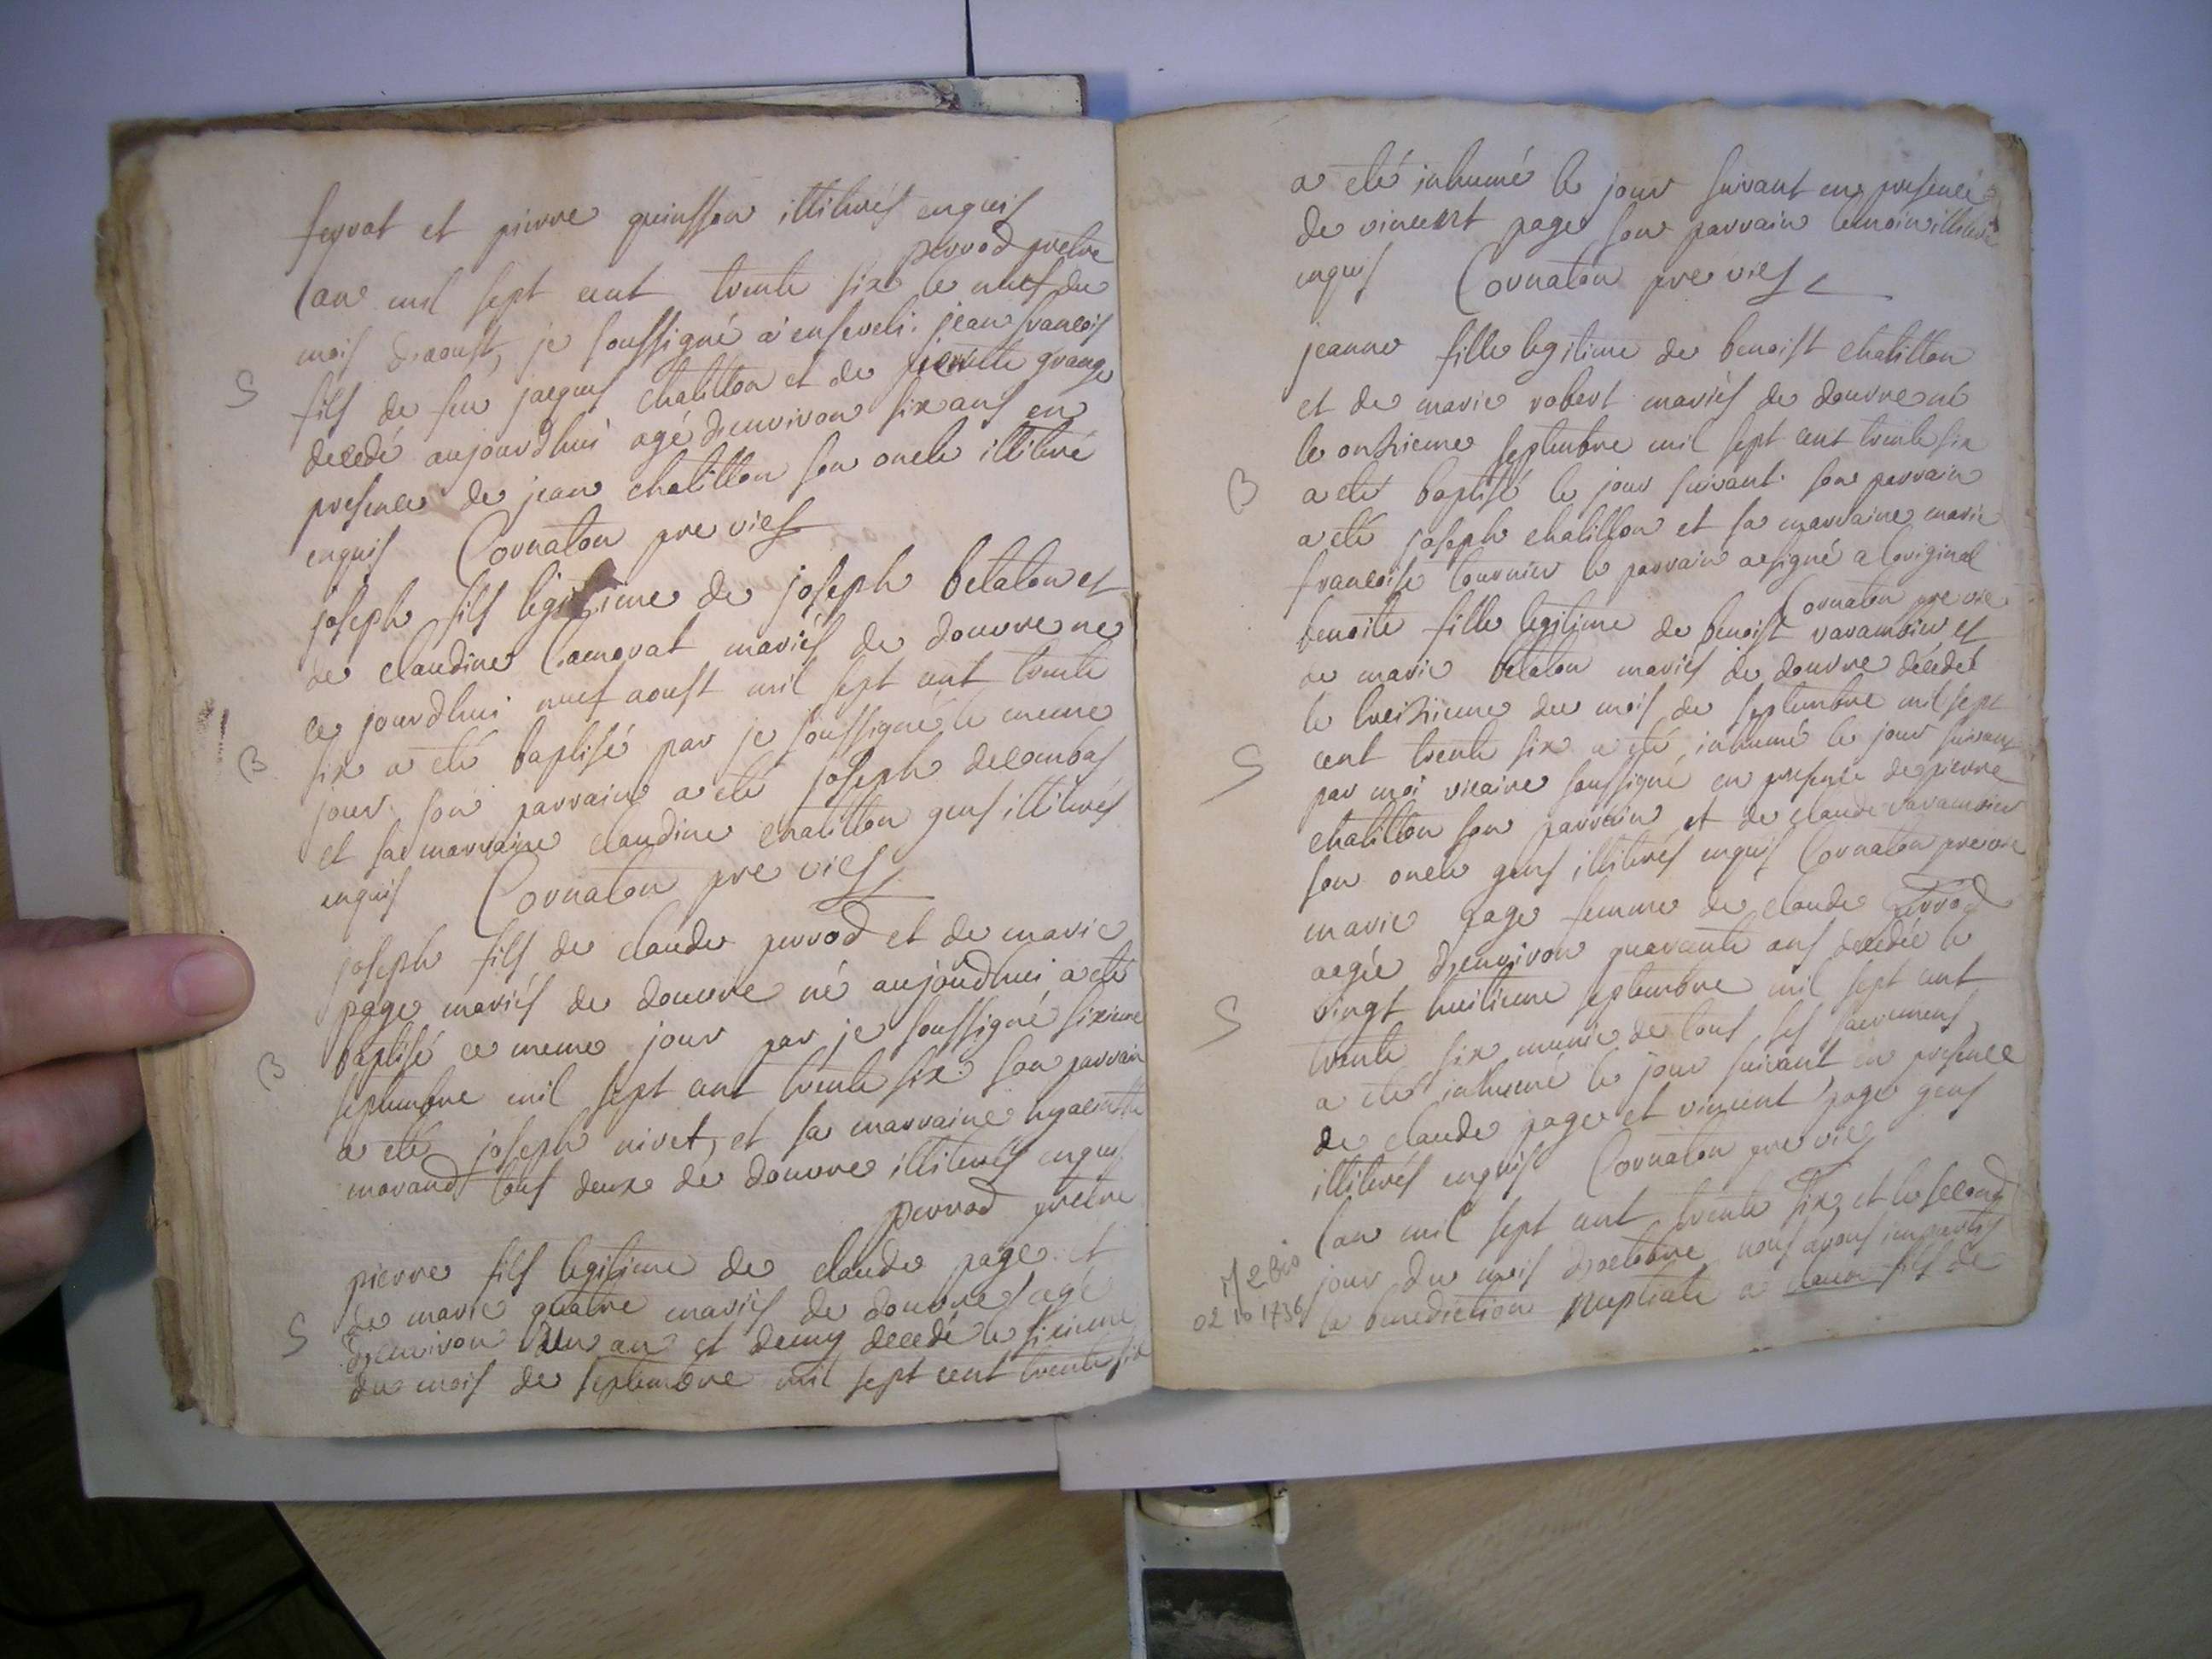 ferrat et pierre quinsson illiterés enquis
perrod pretre
lan mil sept cent trente six le neuf du
mois daoust, je soussigné a enseveli jean francois
S
fils de feu jacques chatillon et de pierrette grange
decedé aujourdhui agé denviron six ans en
presence de jean chatillon son oncle illiteré
enquis Cornaton pre vics
joseph fils legitime de joseph betaton et
de claudine mariés de douvre ne
ce jourdhui neuf aoust mil sept cent trente
B
six a eté baptisé par je soussigné le meme
jour son parrain a eté joseph decombas
et sa marraine claudine chatillon gens illiterés
enquis Cornaton pre vics
joseph fils de claude perrod et de marie
page mariés de douvre né aujourdhui a eté
B
baptisé ce meme jour par je soussigné sixieme
septembre mil sept cent trente six son parrain
a eté joseph nivet, et sa marraine hyacinthe
morand tous deux de douvre illiterés enquis
perrod pretre
pierre fils legitime de claude page et
de marie quatre mariés de douvre agé
S
denviron un an et demy decedé le sixieme
du mois de septembre mil sept cent trente six
a eté inhumé le jour suivant en presence
de vincent page son parrain temoin illiteré
enquis Cornaton pre vics
jeanne fille legitime de benoist chatillon
et de marie robert mariés de douvre né
le onzieme septembre mil sept cent trente six
B
a eté baptisé le jour suivant son parrain
a eté joseph chatillon et sa marraine marie
francoise tournier le parrain a signé a loriginal
Cornaton pre vic
benoite fille legitime de benoist varambier et
de marie betaton mariés de douvre decedée
le treizieme du mois de septembre mil sept
S
cent trente six a eté inhumé le jour suivant
par moi vicaire soussigné en presence de pierre
chatillon son parrain et de claude varambier
son oncle gens illiterés enquis Cornaton pre vic
marie page femme de claude perrod
aegée denviron quarante ans decedée le
S
vingt huitieme septembre mil sept cent
trente six munie de tous ses sacremens
a eté inhumé le jour suivant en presence
de claude page et vincent page gens
illiterés enquis Cornaton pre vic
lan mil sept cent trente six, et le second
jour du mois doctobre nous avons impartis
02 10 1736
la benediction nuptiale a fils de